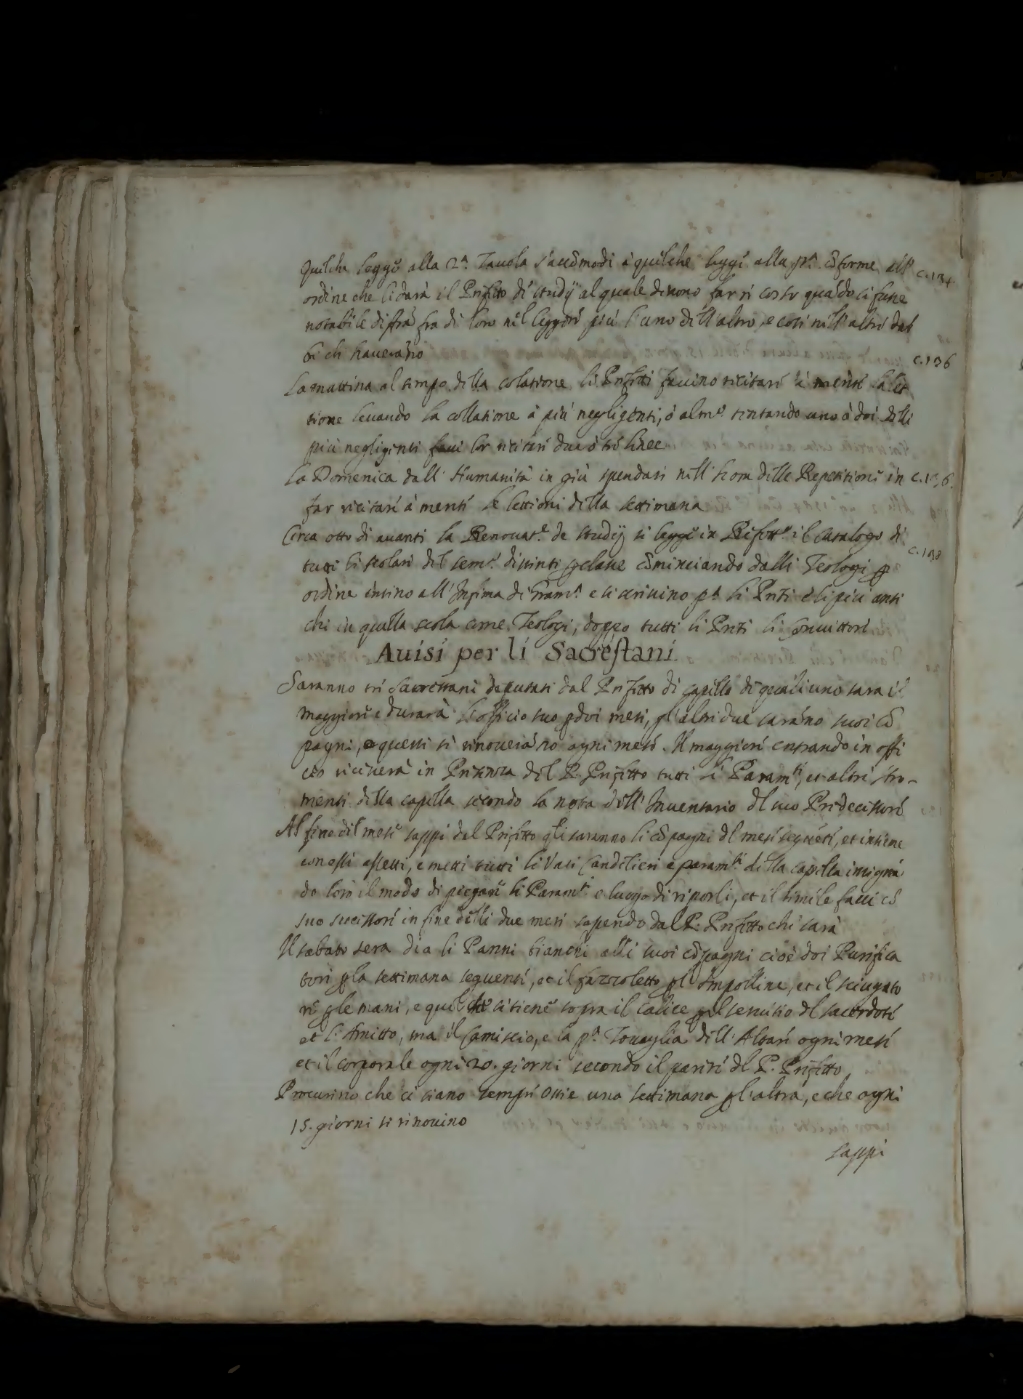 Quel che legge alla 2.ª Tauola s'accōmodi à quel che legge alla pr.ª cōforme all' c.134
ordine che li darà il Prefetto de studij al quale deuono far ri
notabile fra di loro nel leggere più l'uno dell'altro, e così nell'altri
che haueranno
La mattina al tempo della colatione li Prefetti faccino recitare à mente la let c.136
tione leuando la collatione à più negligenti, ò alm.º tentando uno ò doi delli
più negligenti facci lor recitare due ò tre linee
La Domenica dall'Humanità in giù spendasi nell' hora delle Repetitioni in c.136
far recitare à mente le lettioni della settimana
Circa otto dì auanti la Renouat.e de studij si legge in Refett.º il Catalogo di c.140
tutti li scolari del sem.º distinti classe cōminciando dalli Teologi p
ordine insino all'Infima di Gram.ª e si scriuino p.ª li Preti e li più anti
chi in quella scola come Teologi, doppo tutti li Preti li Conuittori
Auisi per li Sacrestani
Saranno tre Sacrestani deputati dal Prefetto di capella de quali uno sara il
maggiore e durarà l'officio suo p doi mesi, gl'altri due sarāno suoi cō
pagni, e questi si rinouerāno ogni mese. Il maggiore entrando in offi
cio riceuerà in Presenza del P. Prefetto tutti li Param.ti, et altri stro-
menti della capella secondo la nota dell'Inuentario del suo Predecessore
Al fine del mese sappi dal Prefetto quali saranno li cōpagni del mese seguēte, et insieme
con essi assetti, e metti tutti li Vasi Candelieri e param.ti della capella insegnā
do loro il modo di piegare li Param.ti e luogo di riporli, et il simile facci cō
suo successore in fine delli due mesi sapendo dal P. Prefetto chi sarà
Il sabbato sera dia li Panni bianchi alli suoi cōpagni cioè doi Purifica
tori p la settimana seguente, et il fazzoletto p l'Ampolline, et il sciugato
re p le mani, e quel che si tiene sopra il Calice p seruitio del sacerdote
et l'Amitto, ma il Camiscio, e la p.ª Touaglia dell'Altare ogni mese
et il corporale ogni 20. giorni secondo il parere del P. Prefetto
Procurino che ci siano sempre Ostie una settimana p l'altra, e che ogni
15. giorni si rinouino
sappi